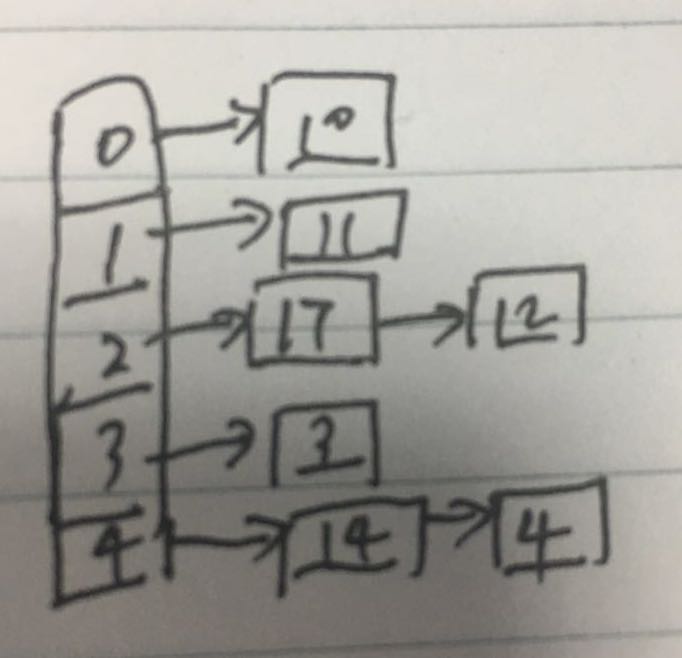 0 10
1 11
2 17 12
3 3
4 14 4